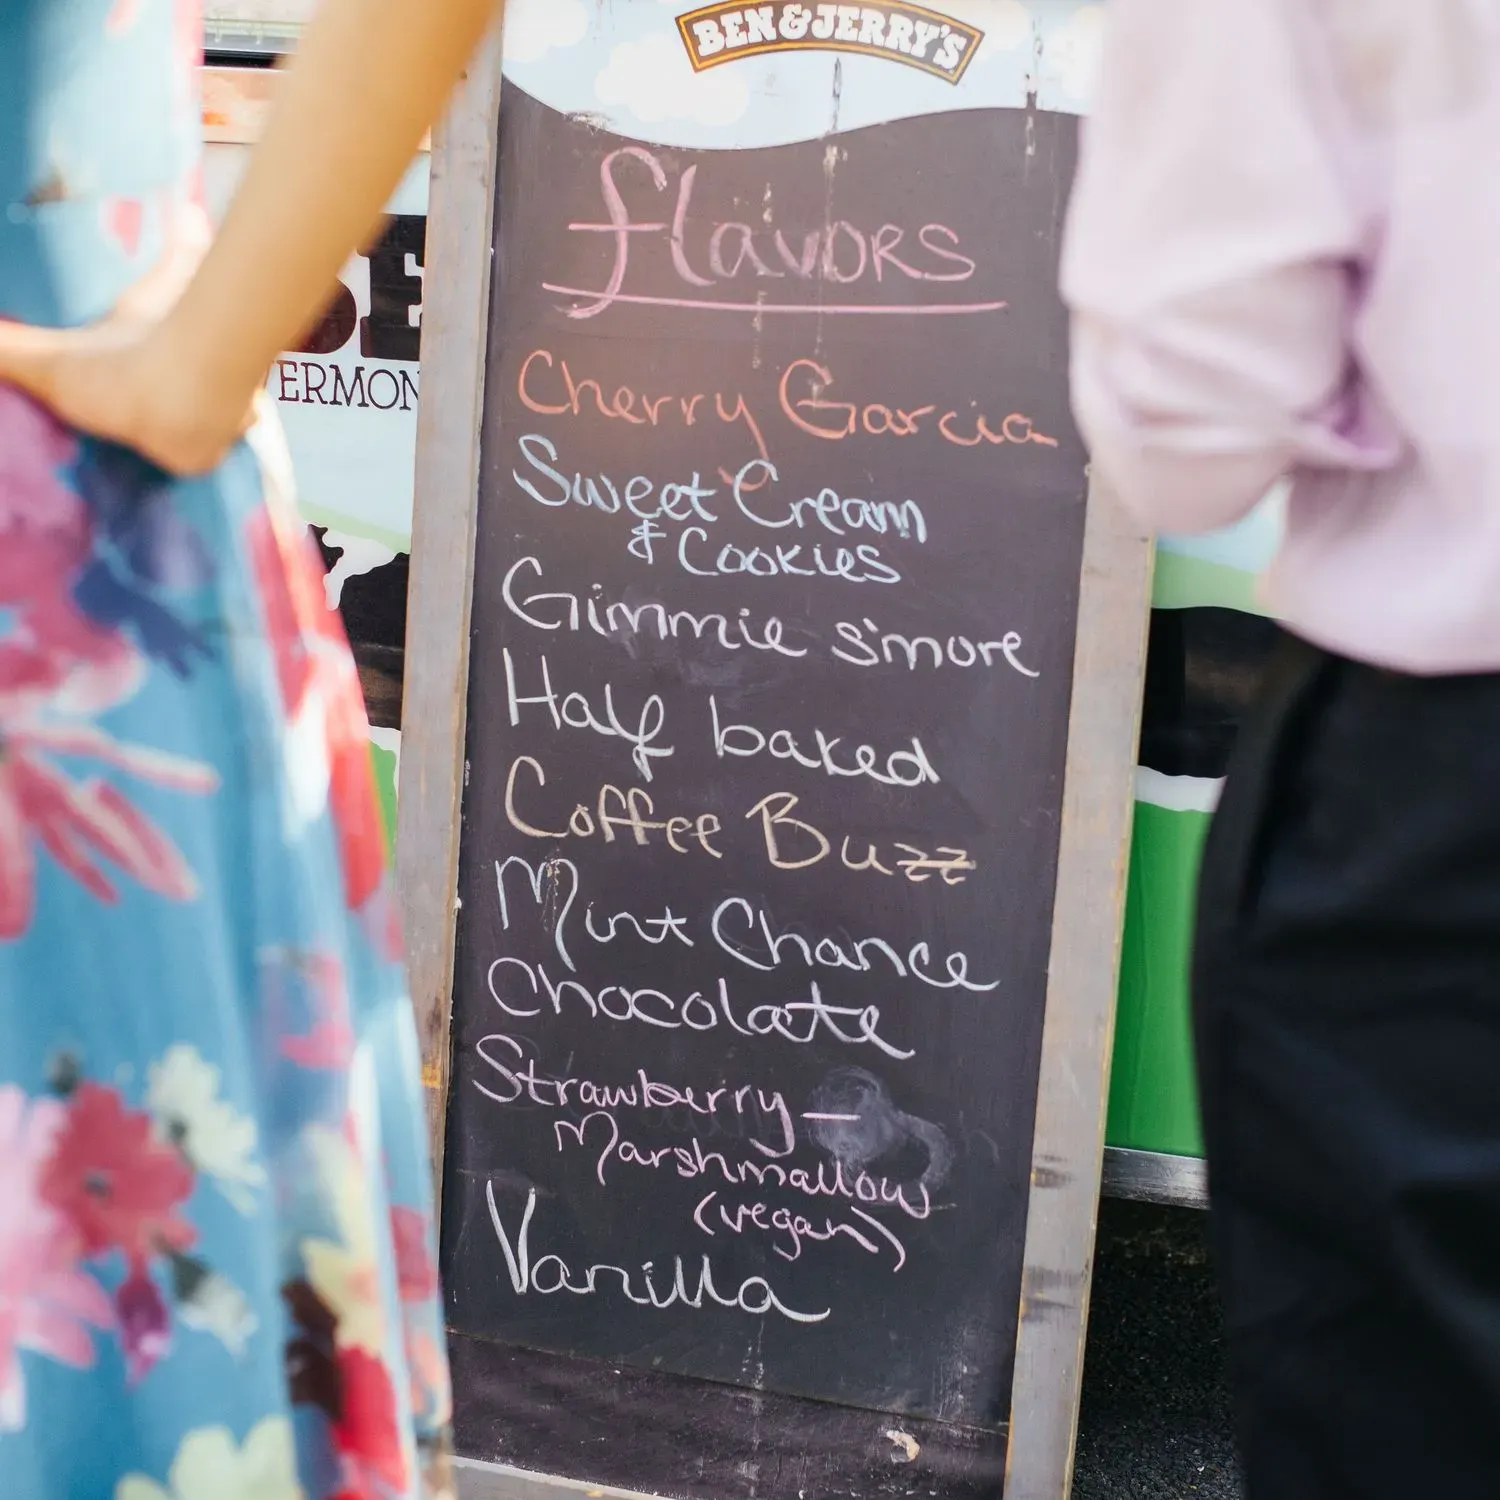 BEN & JERRY'S
flavors
Cherry Garcia
Sweet Cream
& Cookies
Gimmie s'more
Half baked
Coffee Buzz
Mint Chance
Chocolate
Strawberry -
Marshmallow
(vegan)
Vanilla
ERMON